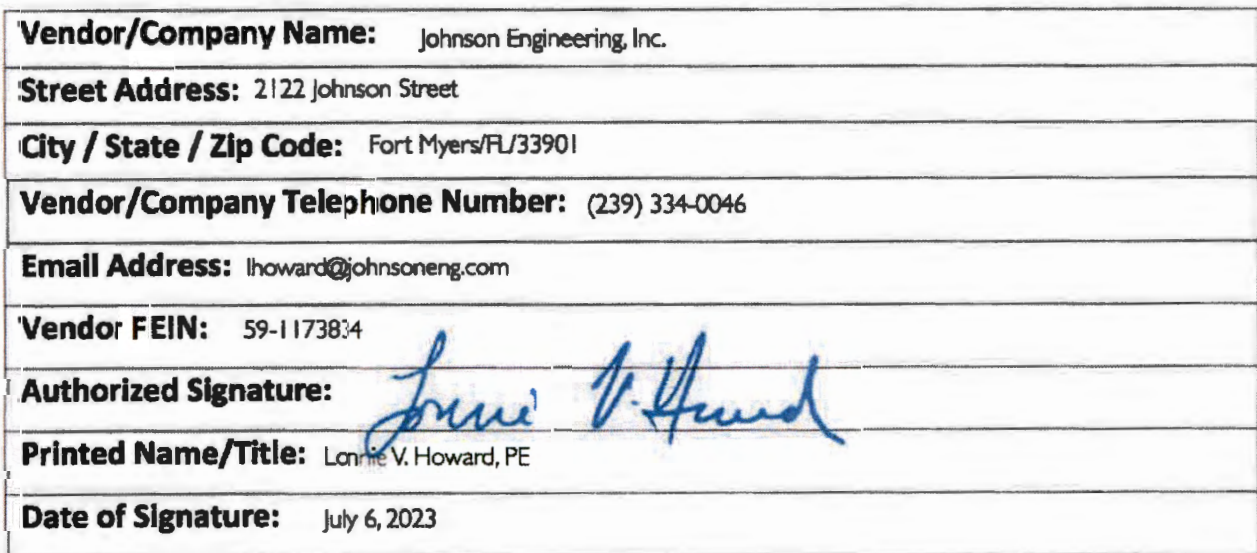 Vendor/Company Name: Johnson Engineering, Inc.
Street Address: 2122 Johnson Street
City / State / Zip Code: Fort Myers/FL/33901
Vendor/Company Telephone Number: (239) 334-0046
Email Address: lhoward@johnsoneng.com
Vendor FEIN: 59-1173834
Authorized Signature: Lonnie V. Howard
Printed Name/Title: Lonnie V. Howard, PE
Date of Signature: July 6, 2023